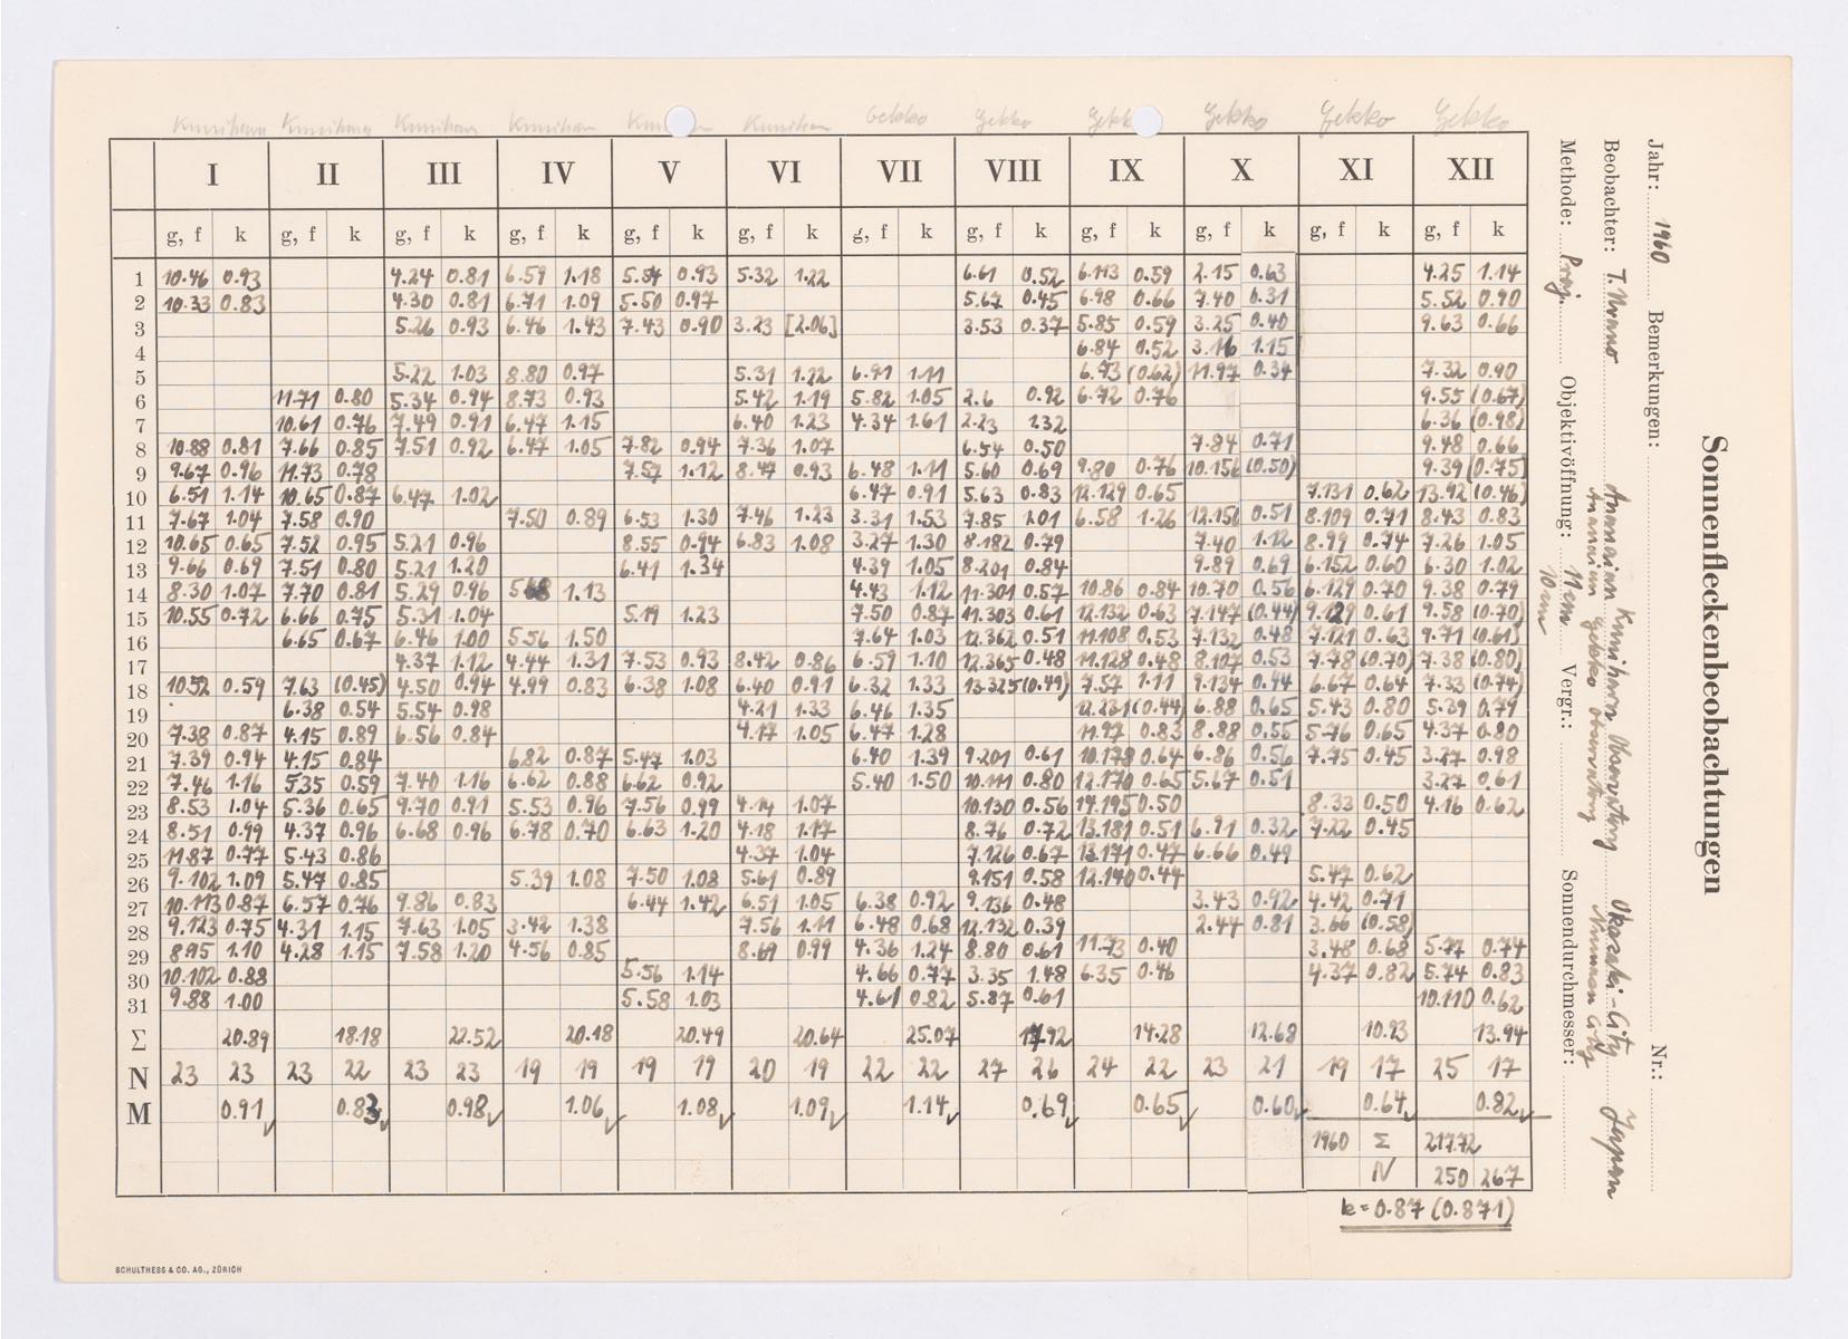 Sonnenfleckenbeobachtungen
Jahr: 1960 Bemerkungen: Nr.:
Beobachter: Observatory Okazaki-City Japan
Methode: Proj. Objektivöffnung: 11 cm Vergr.: Sonnendurchmesser:
10 cm
Gekko Gekko Gekko Gekko Gekko Gekko
I II III IV V VI VII VIII IX X XI XII
g, f k g, f k g, f k g, f k g, f k g, f k g, f k g, f k g, f k g, f k g, f k g, f k
1 10.46 0.93 4.24 0.81 6.59 1.18 5.54 0.93 5.32 1.22 6.61 0.52 6.113 0.59 2.15 0.63 4.25 1.14
2 10.33 0.83 4.30 0.81 6.71 1.09 5.50 0.97 5.67 0.45 6.98 0.66 7.40 0.31 5.52 0.90
3 5.26 0.93 6.46 1.43 7.43 0.90 3.23 [2.06] 3.53 0.37 5.85 0.59 3.25 0.40 9.63 0.66
4 6.84 0.52 3.16 1.15
5 5.22 1.03 8.80 0.97 5.31 1.22 6.91 1.11 6.93 (0.62) 11.97 0.34 7.32 0.90
6 11.71 0.80 5.34 0.94 8.73 0.93 5.42 1.19 5.82 1.05 2.6 0.92 6.72 0.76 9.55 (0.67)
7 10.61 0.76 7.49 0.91 6.47 1.15 6.40 1.23 4.34 1.61 2.23 232 6.36 (0.98)
8 10.88 0.81 7.66 0.85 7.51 0.92 6.47 1.05 7.82 0.94 7.36 1.07 6.54 0.50 7.84 0.71 9.48 0.66
9 9.67 0.96 11.73 0.78 7.57 1.12 8.47 0.93 6.48 1.11 5.60 0.69 9.80 0.76 10.156 (0.50) 9.39 (0.75)
10 6.51 1.14 10.65 0.87 6.47 1.02 6.47 0.91 5.63 0.83 12.129 0.65 7.131 0.62 13.92 (0.46)
11 7.67 1.04 7.58 0.90 7.50 0.89 6.53 1.30 7.46 1.23 3.31 1.53 7.85 1.01 6.58 1.26 12.150 0.51 8.109 0.71 8.43 0.83
12 10.65 0.65 7.52 0.95 5.21 0.96 8.55 0.94 6.83 1.08 3.27 1.30 8.182 0.79 7.40 1.12 8.99 0.74 7.26 1.05
13 9.66 0.69 7.51 0.80 5.21 1.20 6.41 1.34 4.39 1.05 8.201 0.84 9.89 0.69 6.152 0.60 6.30 1.02
14 8.30 1.07 7.70 0.81 5.29 0.96 1.13 4.43 1.12 11.301 0.57 10.86 0.84 10.70 0.56 6.129 0.70 9.38 0.79
15 10.55 0.72 6.66 0.75 5.31 1.04 5.19 1.23 7.50 0.87 11.303 0.61 12.132 0.63 7.147 (0.44) 9.129 0.61 9.58 (0.70)
16 6.65 0.67 6.46 1.00 5.56 1.50 7.64 1.03 12.362 0.51 11.108 0.53 7.132 0.48 7.121 0.63 9.71 (0.61)
17 4.37 1.12 4.44 1.31 7.53 0.93 8.42 0.86 6.59 1.10 12.365 0.48 11.128 0.48 8.107 0.53 7.78 (0.70) 7.38 (0.80)
18 10.52 0.59 7.63 (0.45) 4.50 0.94 4.99 0.83 6.38 1.08 6.40 0.91 6.32 1.33 13.325 (0.49) 7.57 1.11 9.134 0.44 6.67 0.64 7.33 (0.74)
19 6.38 0.54 5.54 0.98 4.21 1.33 6.46 1.35 12.231 (0.44) 6.88 0.65 5.43 0.80 5.39 0.79
20 7.38 0.87 4.15 0.89 6.56 0.84 4.17 1.05 6.47 1.28 11.97 0.83 8.88 0.55 5.76 0.65 4.37 0.80
21 7.39 0.94 4.15 0.84 6.82 0.87 5.47 1.03 6.40 1.39 9.201 0.61 10.178 0.64 6.86 0.56 7.75 0.45 3.27 0.98
22 7.46 1.16 5.35 0.59 7.40 1.16 6.62 0.88 6.62 0.92 5.40 1.50 10.111 0.80 12.170 0.65 5.67 0.51 3.27 0.61
23 8.53 1.04 5.36 0.65 9.70 0.91 5.53 0.96 7.56 0.99 4.14 1.07 10.130 0.56 14.195 0.50 8.33 0.50 4.16 0.62
24 8.51 0.99 4.37 0.96 6.68 0.96 6.78 0.70 6.63 1.20 4.18 1.17 8.76 0.72 13.181 0.51 6.91 0.32 7.22 0.45
25 11.87 0.77 5.43 0.86 4.37 1.04 7.126 0.67 13.171 0.47 6.66 0.49
26 9.102 1.09 5.47 0.85 5.39 1.08 7.50 1.08 5.61 0.89 9.151 0.58 12.140 0.44 5.47 0.62
27 10.113 0.87 6.57 0.76 9.86 0.83 6.44 1.42 6.51 1.05 6.38 0.92 9.136 0.48 3.43 0.92 4.42 0.71
28 9.123 0.75 4.31 1.15 7.63 1.05 3.42 1.38 7.56 1.11 6.48 0.68 12.132 0.39 2.44 0.81 3.66 (0.58)
29 8.95 1.10 4.28 1.15 7.58 1.20 4.56 0.85 8.69 0.99 4.36 1.24 8.80 0.61 11.73 0.40 3.48 0.68 5.27 0.74
30 10.102 0.88 5.56 1.14 4.66 0.77 3.35 1.48 6.35 0.46 4.37 0.82 5.74 0.83
31 9.88 1.00 5.58 1.03 4.61 0.82 5.87 0.61 10.110 0.62
Σ 20.89 18.18 22.52 20.18 20.49 20.64 25.07 17.92 14.28 12.68 10.93 13.94
N 23 23 23 22 23 23 19 19 19 19 20 19 22 22 27 26 24 22 23 21 19 17 25 17
M 0.91 0.83 0.98 1.06 1.08 1.09 1.14 0.69 0.65 0.60 0.64 0.82
1960 Σ 217.72
N 250 267
k = 0.87 (0.871)
SCHULTHESS & CO. AG., ZÜRICH